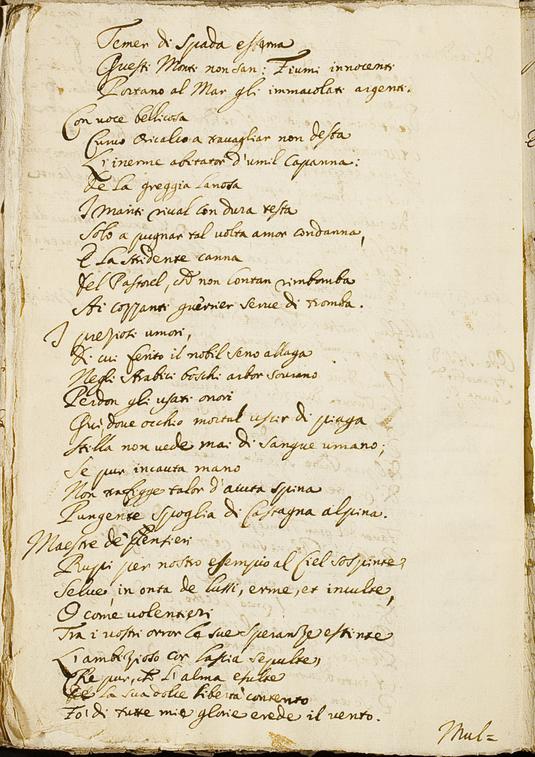 Temer di Spada esterna
Questi Monti non san: Fiumi innocenti
Portano al Mar gli immacolati argenti.
Con voce bellicosa
Curvo Oricalco a travagliar non desta
L'inerme abitator d'umil Capanna:
De la greggia lanosa
I mariti rival con dura testa
Solo a pugnar tal volta amor condanna,
E la stridente canna
Del Pastorel, ch' non contan rimbomba
Ai cozzanti guerrier serve di tromba.
I preziosi umori,
Di cui ferito il nobil seno allaga
Negli Arabici boschi arbor sovrano
Perdon gli usati onori
Qui dove occhio mortal uscir di piaga
Stilla non vede mai di Sangue umano;
Se pur incauta mano
Non trafigge talor d'acuta spina
Pungente Spoglia di Castagna alpina.
Maestre de
Rupi per nostro essempio al Ciel sospinte,
Selve, in onta de lussi, erme, et inculte,
O come volentieri
Tra i vostri orror le sue speranze estinte
L'ambizioso cor lascia sepulte,
Che pur, ch' l'alma esulte
De la sua dolce libertà contento
Fo' di tutte mie glorie erede il vento.
Mul=